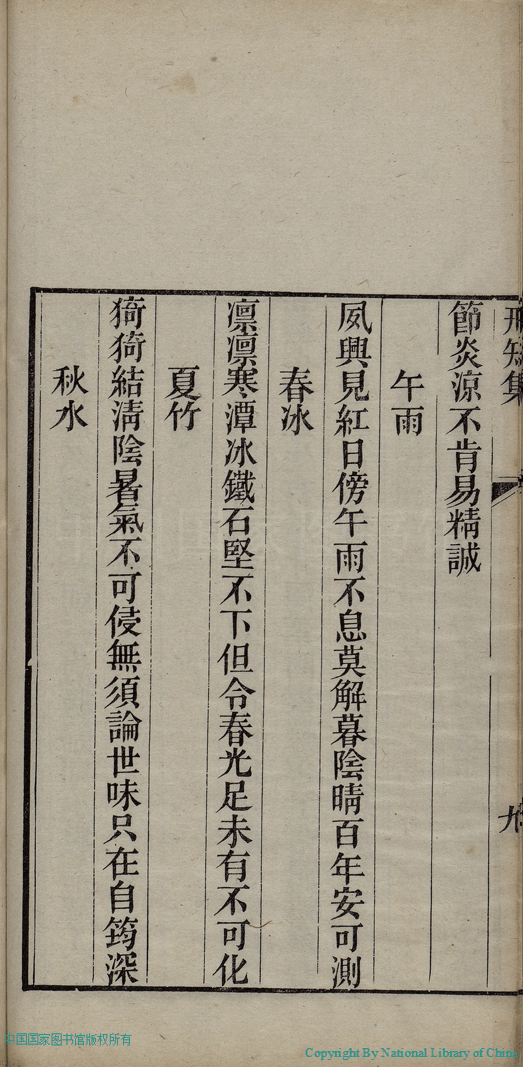 知集
九
節炎涼不肯易精誠
午雨
夙興見紅日傍午雨不息莫解暮陰晴百年安可測
春冰
凛凛寒潭冰鐵石堅不下但令春光足未有不可化
夏竹
猗猗結淸陰暑氣不可侵無須論世味只在自筠深
秋水
中国国家图书馆版权所有
Copyright By National Library of China